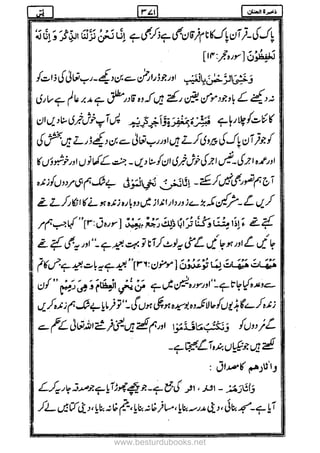 ذخیرۃ الجنان
۳۷۱
یٰسٓ
پاک کی۔ قرآن پاک کا نام فرقان بھی ہے ذکر بھی ہے اِنَّا نَحْنُ نَزَّلْنَا الذِّكْرَ وَاِنَّا لَهٗ
لَحٰفِظُوْنَ [سورہ حجر: ۱۴]
وَخَشِیَ الرَّحْمٰنَ بِالْغَیْبِ اور جو ڈرا رحمٰن سے بن دیکھے۔ رب تعالیٰ کی ذات کو
نہ دیکھنے کے باوجود مومن یقین رکھتے ہیں کہ وہ قادر مطلق ہے مدبر عالم ہے ساری
کائنات کو چلا رہا ہے فَبَشِّرْهُ بِمَغْفِرَةٍ وَّاَجْرٍ كَرِیْمٍ پس آپ خوش خبری سنا دیں ان
کو جو قرآن پاک کی پیروی کرتے ہیں اور رب تعالیٰ سے بن دیکھے ڈرتے ہیں بخشش کی
اور عمدہ اجر کی، نفیس اجر کی خوش خبری ان کو سنا دیں۔ جنت کے کھانوں اور خوشبوؤں کا
آج ہم تصور بھی نہیں کر سکتے۔ اِنَّا نَحْنُ نُحْیِ الْمَوْتٰى بے شک ہم ہی مردوں کو زندہ
کریں گے۔ مشرکین مکہ بڑے زور دار انداز میں دوبارہ زندہ ہونے کا انکار کرتے تھے
کہتے تھے ءَاِذَا مِتْنَا وَكُنَّا تُرَابًا ذٰلِكَ رَجْعٌۢ بَعِیْدٌ [سورہ ق: ۳] "کہا جب ہم مر
جائیں گے اور ہو جائیں گے مٹی یہ لوٹ کر آنا تو بہت بعید ہے۔" اور یہ بھی کہتے تھے
هَیْهَاتَ هَیْهَاتَ لِمَا تُوْعَدُوْنَ [مومنون: ۳۶] "بعید ہے یہ بات بعید ہے جس کا تم
سے وعدہ کیا جاتا ہے۔" اور سورہ یٰسین میں ہے مَنْ یُّحْیِ الْعِظَامَ وَهِیَ رَمِیْمٌ "کون
زندہ کرے گا ہڈیوں کو حالانکہ وہ بوسیدہ ہو چکی ہوں گی۔" تو فرمایا بے شک ہم زندہ کریں
گے مُردوں کو وَنَكْتُبُ مَا قَدَّمُوْا اور ہم لکھتے ہیں یعنی فرشتے اللہ تعالیٰ کے حکم سے
لکھتے ہیں جو نیکیاں بندہ آگے بھیجتا ہے۔
واٰثارھم کا مصداق :
وَاٰثَارَهُمْ۔ آثار، اثر کی جمع ہے۔ جو پیچھے چھوڑ آیا ہے جو صدقہ جاریہ کر کے
آیا ہے۔ مسجد بنائی، دینی مدرسہ بنایا، مسافر خانہ بنایا، یتیم خانہ بنایا، دینی کتابیں لے کر
www.besturdubooks.net